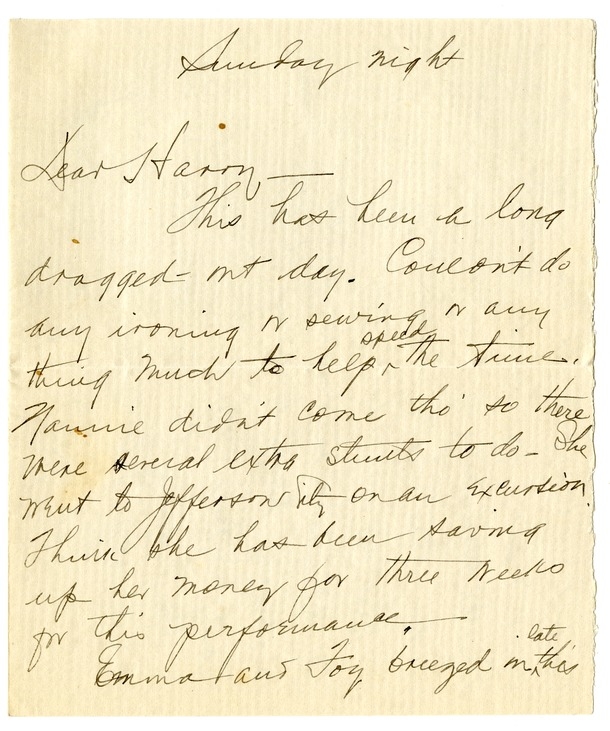 Sunday night
Dear Harry —
This has been a long
dragged-out day. Couldn't do
any ironing or sewing or any
speed
thing much to help ‸ the time.
Nannie didn't come tho' so there
were several extra stunts to do - She
went to Jefferson City on an excursion.
Think she has been saving
up her money for three weeks
for this performance.
late
Emma and Foy breezed in ‸ this